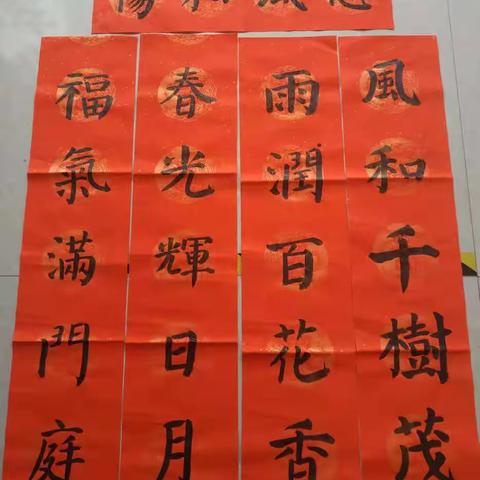 風和千樹茂
雨潤百花香
春光輝日月
福氣滿門庭